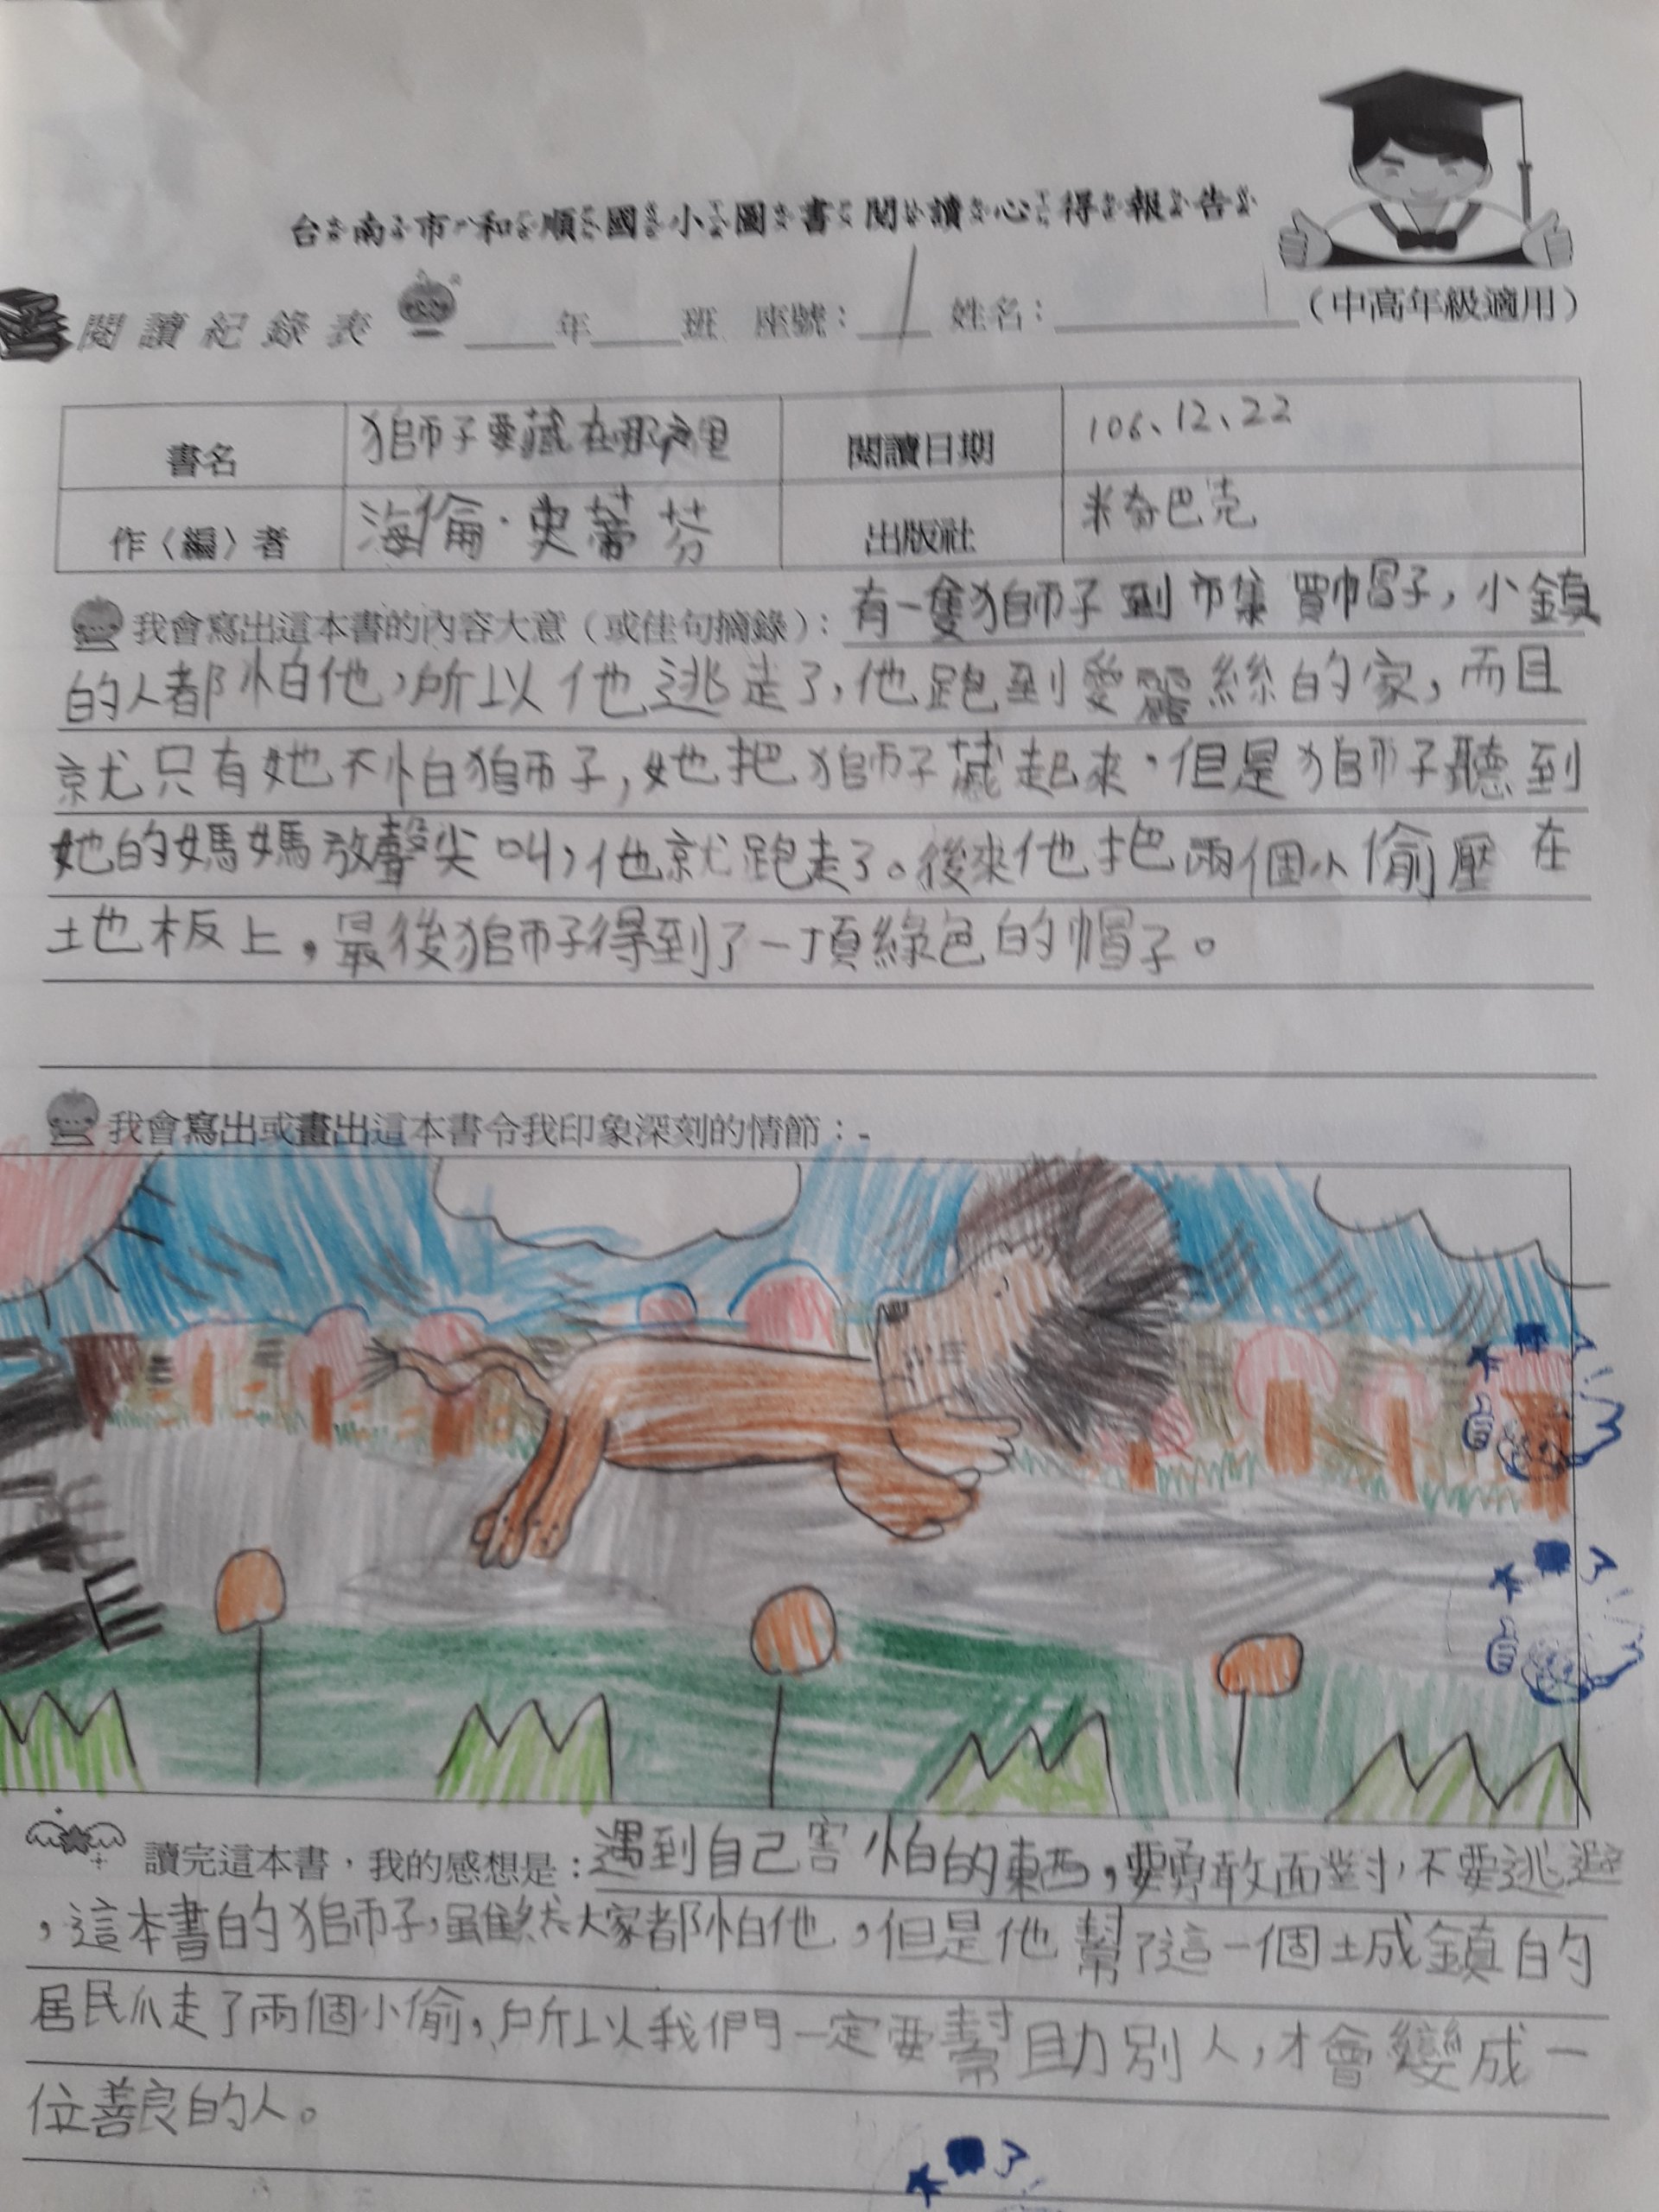 台南市和順國小圖書閱讀心得報告
閱讀紀錄表 ____年____班 座號：____ 姓名：________ （中高年級適用）
書名 獅子要藏在哪裡 閱讀日期 106、12、22
作〈編〉者 海倫·史蒂芬 出版社 米奇巴克
我會寫出這本書的內容大意（或佳句摘錄）：有一隻獅子到市集買帽子，小鎮
的人都怕他，所以他逃走了，他跑到愛麗絲的家，而且
就只有她不怕獅子，她把獅子藏起來，但是獅子聽到
她的媽媽放聲尖叫，他就跑走了。後來他把兩個小偷壓在
地板上，最後獅子得到了一頂綠色的帽子。
我會寫出或畫出這本書令我印象深刻的情節：
讀完這本書，我的感想是：遇到自己害怕的東西，要勇敢面對，不要逃避
，這本書的獅子，雖然大家都怕他，但是他幫了這一個城鎮的
居民爪走了兩個小偷，所以我們一定要幫助別人，才會變成一
位善良的人。